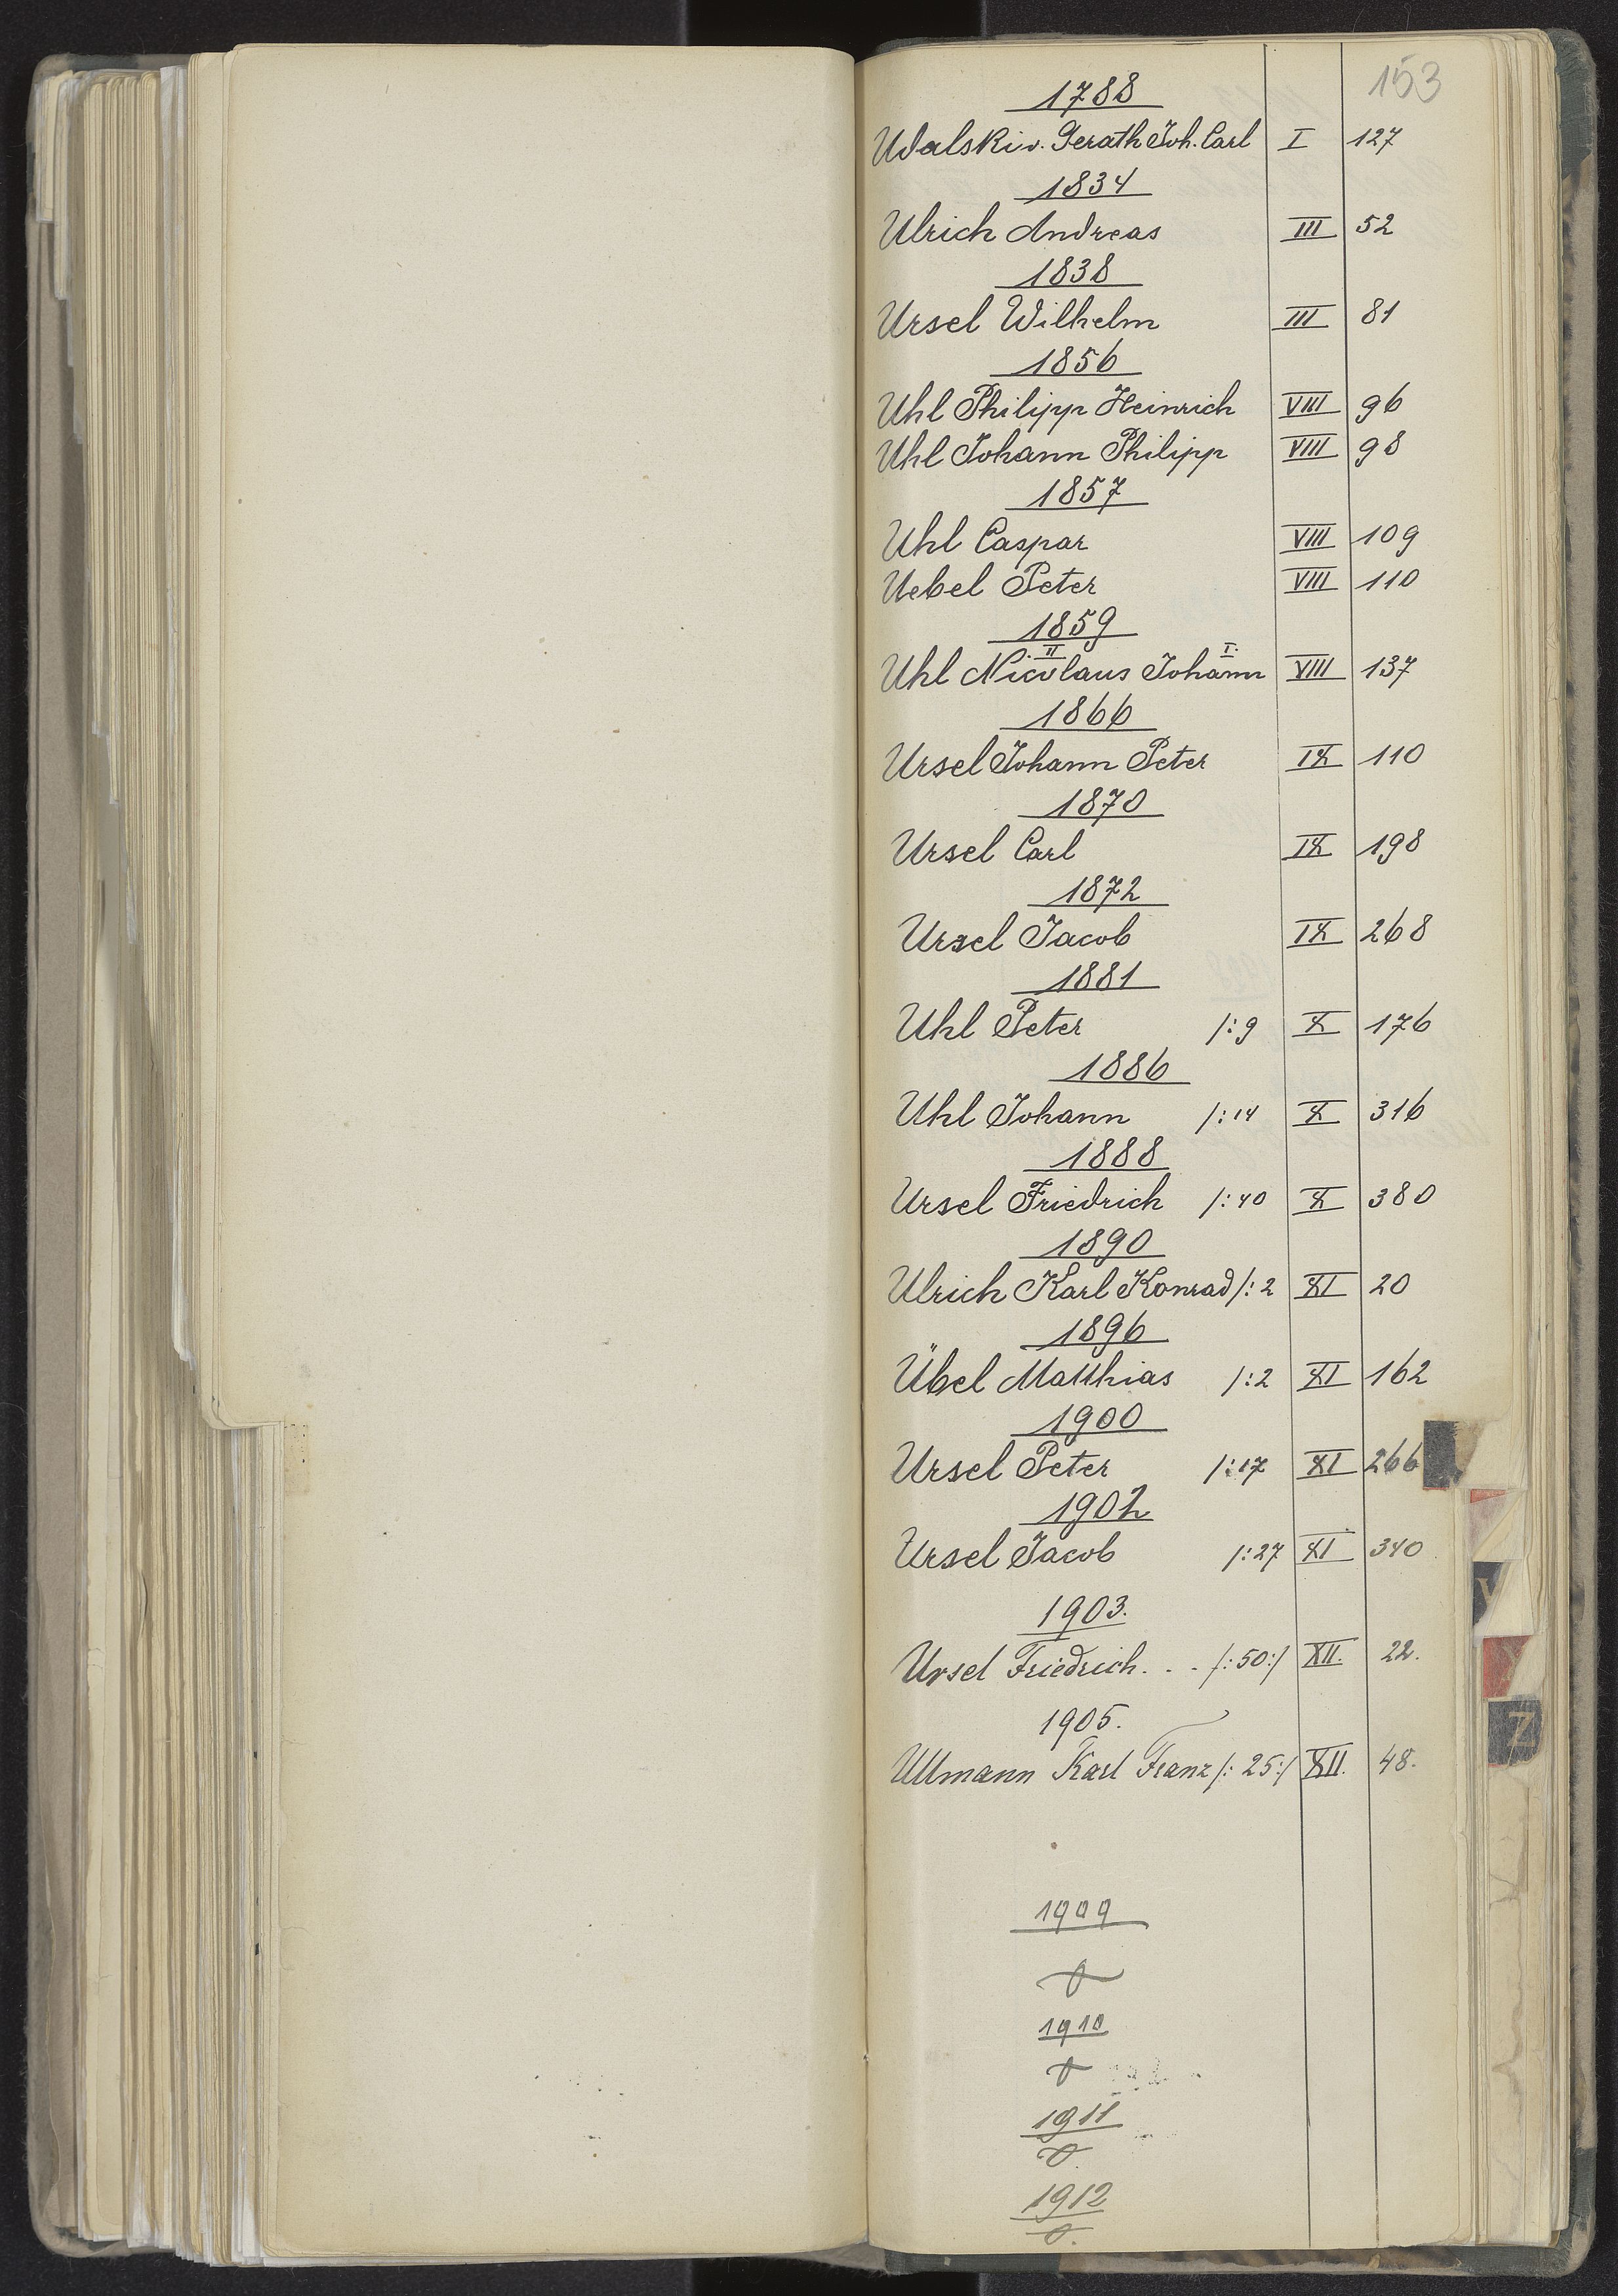 153
1788
Udalski v. Gerath Joh. Carl I 127
1834
Ulrich Andreas III 52
1838
Ursel Wilhelm III 81
1856
Uhl Philipp Heinrich VIII 96
Uhl Johann Philipp VIII 98
1857
Uhl Caspar VIII 109
Uebel Peter VIII 110
1859
II I.
Uhl Nicolaus Johann VIII 137
1866
Ursel Johann Peter IX 110
1870
Ursel Carl IX 198
1872
Ursel Jacob IX 268
1881
Uhl Peter /:9 X 176
1886
Uhl Johann /:14 X 316
1888
Ursel Friedrich /:40 X 380
1890
Ulrich Karl Konrad /:2 XI 20
1896
Übel Matthias /:2 XI 162
1900
Ursel Peter /:17 XI 266
1902
Ursel Jacob /:27 XI 340
1903.
Ursel Friedrich. . . /:50:/ XII. 22.
1905.
Ullmann Karl Franz /:25:/ XII. 48.
1909
1910
1911
1912
V
Z